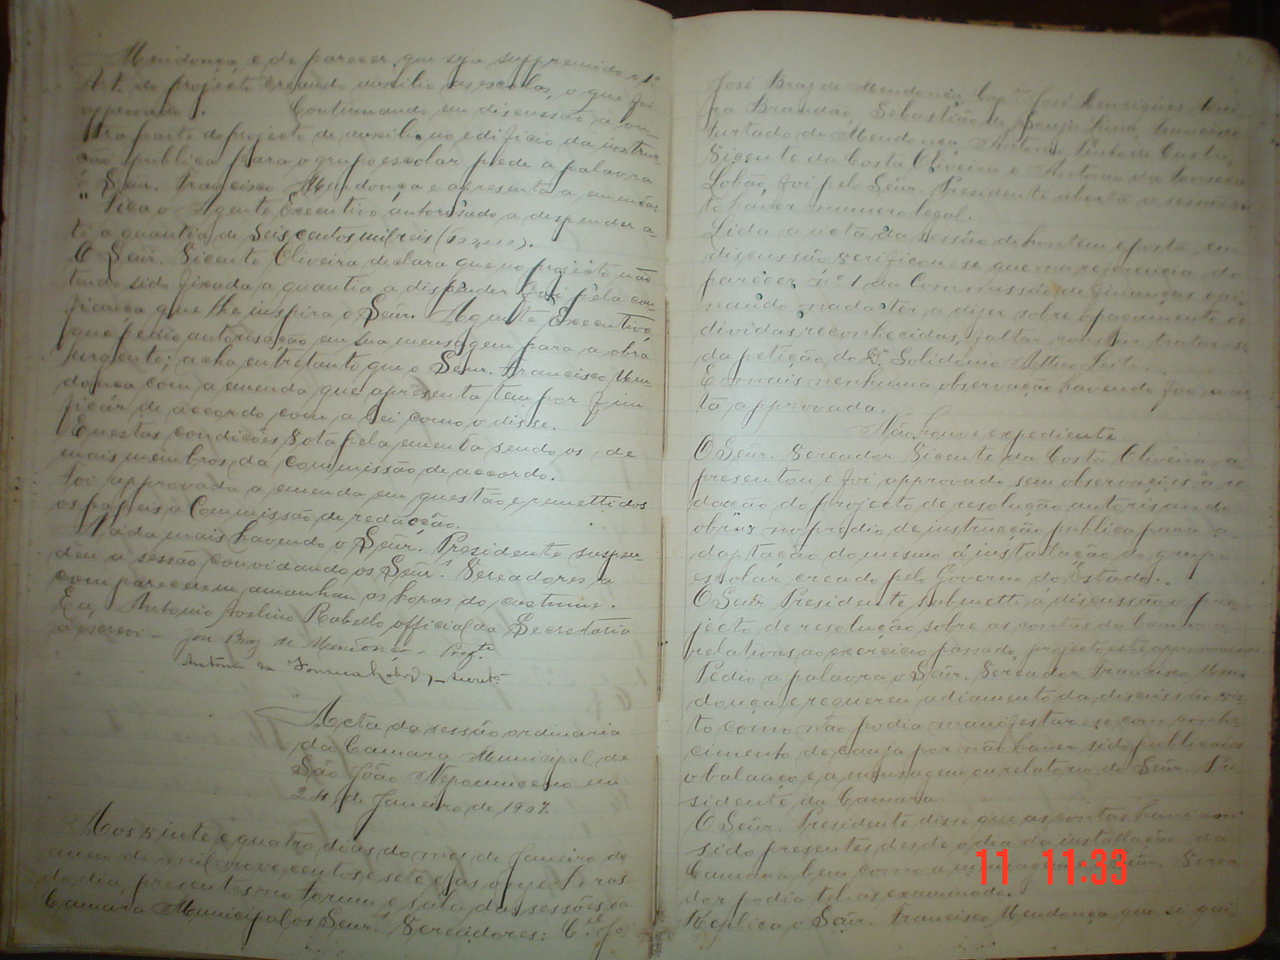 Mendonça e de parecer que seja supprimido o 1º
Art. do projecto creando auxilio às escolas, o que foi
approvado. Continuando em discussão a ou-
tra parte do projecto de auxilio no edificio da instruc
ção publica para o grupo escolar pede a palavra
o Señr. Francisco Mendonça e apresenta a emenda:
"Fica o Agente Executivo autorisado a despender a-
té a quantia de Seis contos mil reis
O Señr. Vicente Oliveira declara que no projecto não
tendo sido fixada a quantia a dispender foi pela con-
fiança que lhe inspira o Señr. Agente Executivo,
que pedio autorisação em sua mensagem para a obra
urgente; acha entretanto que o Senr. Francisco Men
donça com a emenda que apresenta tem por fim
ficar de accordo com a lei como o disse.
N'estas condições vota pela ementa sendo os de
mais membros da commissão de accordo.
Foi approvada a emenda em questão e remettidos
os papeis a Commissão de redacção.
Nada mais havendo o Señr. Presidente suspen-
deu a sessão convidando os Señrs. Vereadores a
comparecerem amanhan as horas do costume.
Eu, Antonio Avelino Rabello official da Secretaria
o escrevi - José Braz de Mendonça - Presᵗᵉ
Antonio da Fonseca Lobão
Acta da sessão ordinaria
da Camara Municipal de
São João Nepomuceno em
24 de Janeiro de 1907.
Aos vinte e quatro dias do mez de Janeiro do
anno de mil nove centos e sete e as onze horas
do dia, presentes no forum e sala das sessões da
Camara Municipal os Señrs. Vereadores: Cel. Jo-
José Braz de Mendonça, Capᵐ José Henriques
ra Brandão, Sebastião de Souza Lima, Francisco
Furtado de Mendonça, Antonio Pinto de Castro,
Vicente da Costa Oliveira e Antonio da Fonseca
Lobão, foi pelo Señr. Presidente aberta a sessão
to haver numero legal.
Lida a acta da sessão de hontem e posta em
discussão verificou-se que na referencia do
parecer nº 1 da Commissão de finanças opi-
nando nada ter a dizer sobre o pagamento de
dividas reconhecidas, faltar constar tratar-se
da petição do Dr. Solidonio Attico Leite.
E mais nenhuma observação havendo foi a ac-
ta approvada.
Não houve expediente
O Señr. Vereador Vicente da Costa Oliveira a-
presentou e foi approvado sem observações a re
dacção do projecto de resolução autorisando
obras no predio de instrucção publica para a-
daptação do mesmo á installação do grupo
escolar, creado pelo Governo do Estado.
O Señr. Presidente submette á discussão o pro-
jecto de resolução sobre as contas da Camara
relativas ao exercicio passado, projecto este
Pedio a palavra o Señr. Vereador Francisco Men-
donça e requereu adiamento da discussão vis-
to como não podia manifestar-se com conhe-
cimento de causa por não haver sido publicados
o balanço e a mensagem ou relatorio do Señr. Pre
sidente da Camara
O Señr. Presidente disse que as contas haviam
sido presentes desde o dia da installação da
Camara bem como a Verea
dor podia tel-as examinado.
Replica o Señr. Francisco Mendonça que si qui-
11 11:33